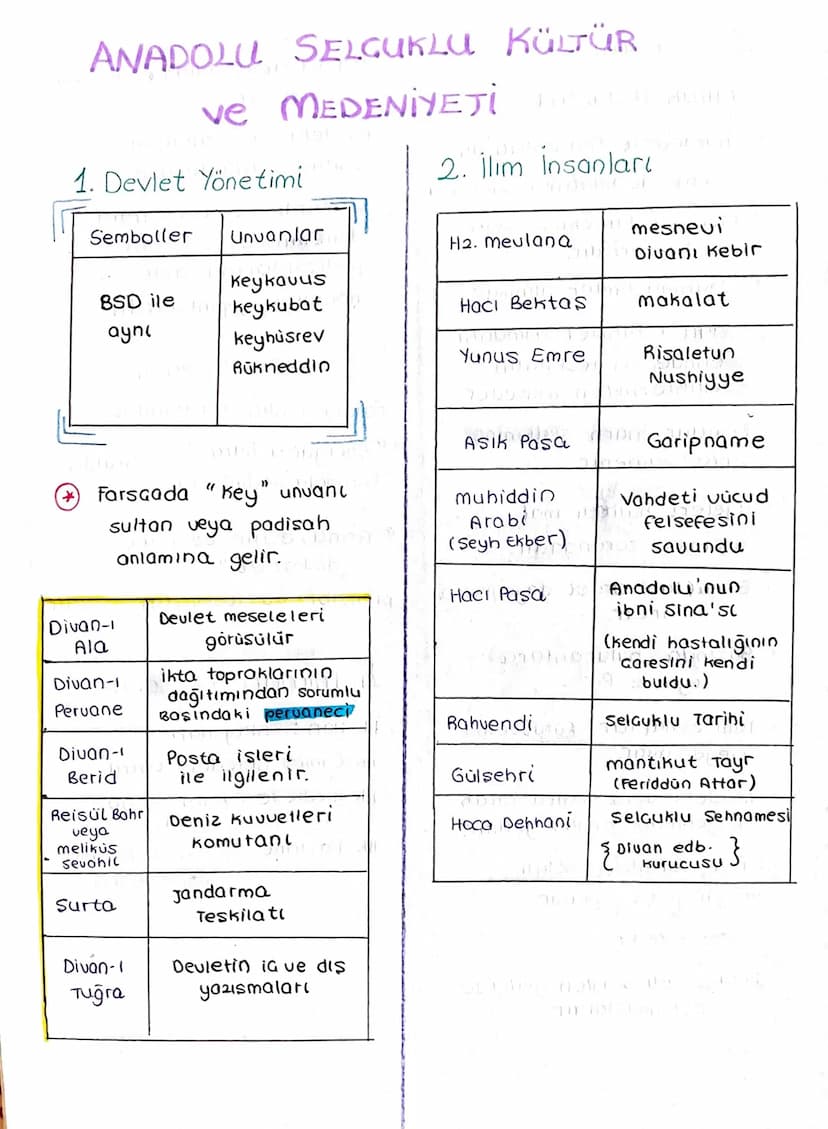 ANADOLU SELCUKLU KÜLTÜR
ve MEDENİYETİ
1. Devlet Yönetimi
Semboller
Unvanlar
BSD ile
aynı
Keykavus
keykubat
keyhüsrev
Rükneddin
* Farscada "key" unvanı
sultan veya padisah
anlamına gelir.
Divan-ı
Ala
Devlet meseleleri
görüsülür
Divan-ı
Pervane
ikta topraklarının
dağıtımından sorumlu
Basındaki pervaneci
Divan-ı
Berid
Posta işleri
ile ilgilenir.
Reisül Bahr
veya
meliküs
sevahil
Deniz kuvvetleri
komutanı
Surta
Jandarma
Teskilatı
Divan-ı
Tuğra
Devletin iç ve dış
yazısmaları
2. İlim İnsanları
Hz. Mevlana
mesnevi
Divanı Kebir
Hacı Bektas
makalat
Yunus Emre
Risaletun
Nushiyye
Asık Pasa
Garipname
muhiddin
Arabi
(Seyh Ekber)
Vahdeti vücud
felsefesini
savundu
Hacı Pasa
Anadolu'nun
ibni Sina'sı
(kendi hastalığının
caresini kendi
buldu.)
Rahvendi
Selcuklu Tarihi
Gülsehri
mantikut Tayr
(Feriddün Attar)
Hoca Dehhani
Selcuklu Sehnamesi
{ Divan edb.
kurucusu }